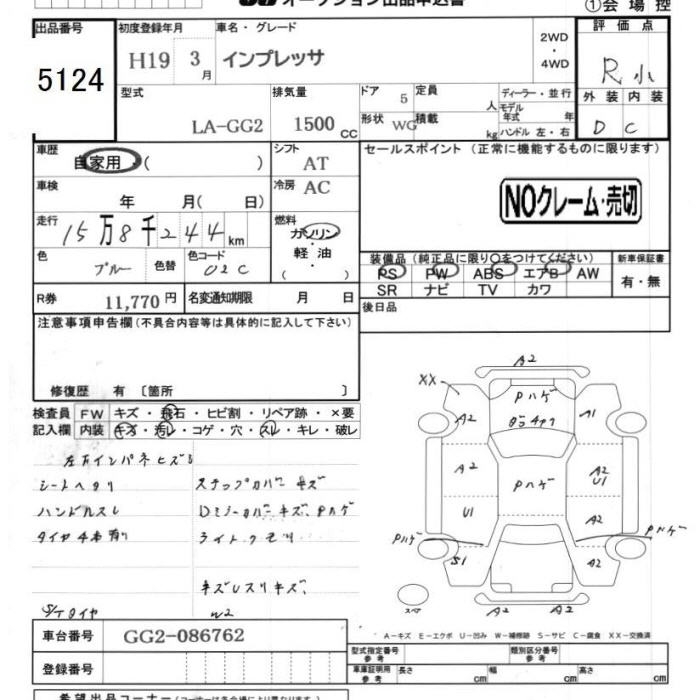 オークション出品申込書
①会場控
出品番号
5124
初度登録年月
H19 3月
車名・グレード
インプレッサ
2WD
・
4WD
評価点
R小
外装 内装
D C
型式
LA-GG2
排気量
1500 CC
ドア 5
定員 人
形状 WG
積載 kg
ディーラー・並行
モデル年式 年
ハンドル 左・右
車歴
自家用・( )
シフト
AT
車検
年 月(日)
冷房
AC
走行
15万8千244km
燃料
ガソリン
軽油
( )
色
ブルー
色替
色コード
02C
R券
11,770円
名変通知期限 月 日
セールスポイント(正常に機能するものに限ります)
NOクレーム・売切
装備品(純正品に限り〇をつけてください)
PS PW ABS エアB AW
SR ナビ TV カワ
新車保証書
有・無
後日品
注意事項申告欄(不具合内容等は具体的に記入して下さい)
修復歴 有〔箇所 〕
検査員 FW キズ・飛石・ヒビ割・リペア跡・×要
記入欄 内装 キズ・汚レ・コゲ・穴・スレ・キレ・破レ
左方インパネヒズミ
シートヘタリ
ステップカバーキズ
ハンドルスレ
DミラーカバーキズPハゲ
タイヤ4本有り
ライトクモリ
キズUスリキズ
S/Tタイヤ
W2
A2
XX
Pハゲ
A2
A1
A2
Pハゲ
A2
U1
U1
A2
Pハゲ
Pハゲ
S1
A2
スペア
A2
A2
A－キズ E－エクボ U－凹み W－補修跡 S－サビ C－腐食 XX－交換済
車台番号 GG2-086762
登録番号
型式指定番号 参考
類別区分番号 参考
車庫証明用 参考 長さ cm 幅 cm 高さ cm
希望出品コーナー